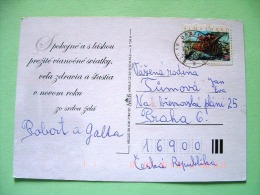 Spokojné a s láskou
prežité vianočné sviatky,
veľa zdravia a šťastia
v novom roku
zo srdca želá
Robert a Galka
Vážená rodina
Tůmová Jan
Eva
Praha 6
16900
Česká Republika